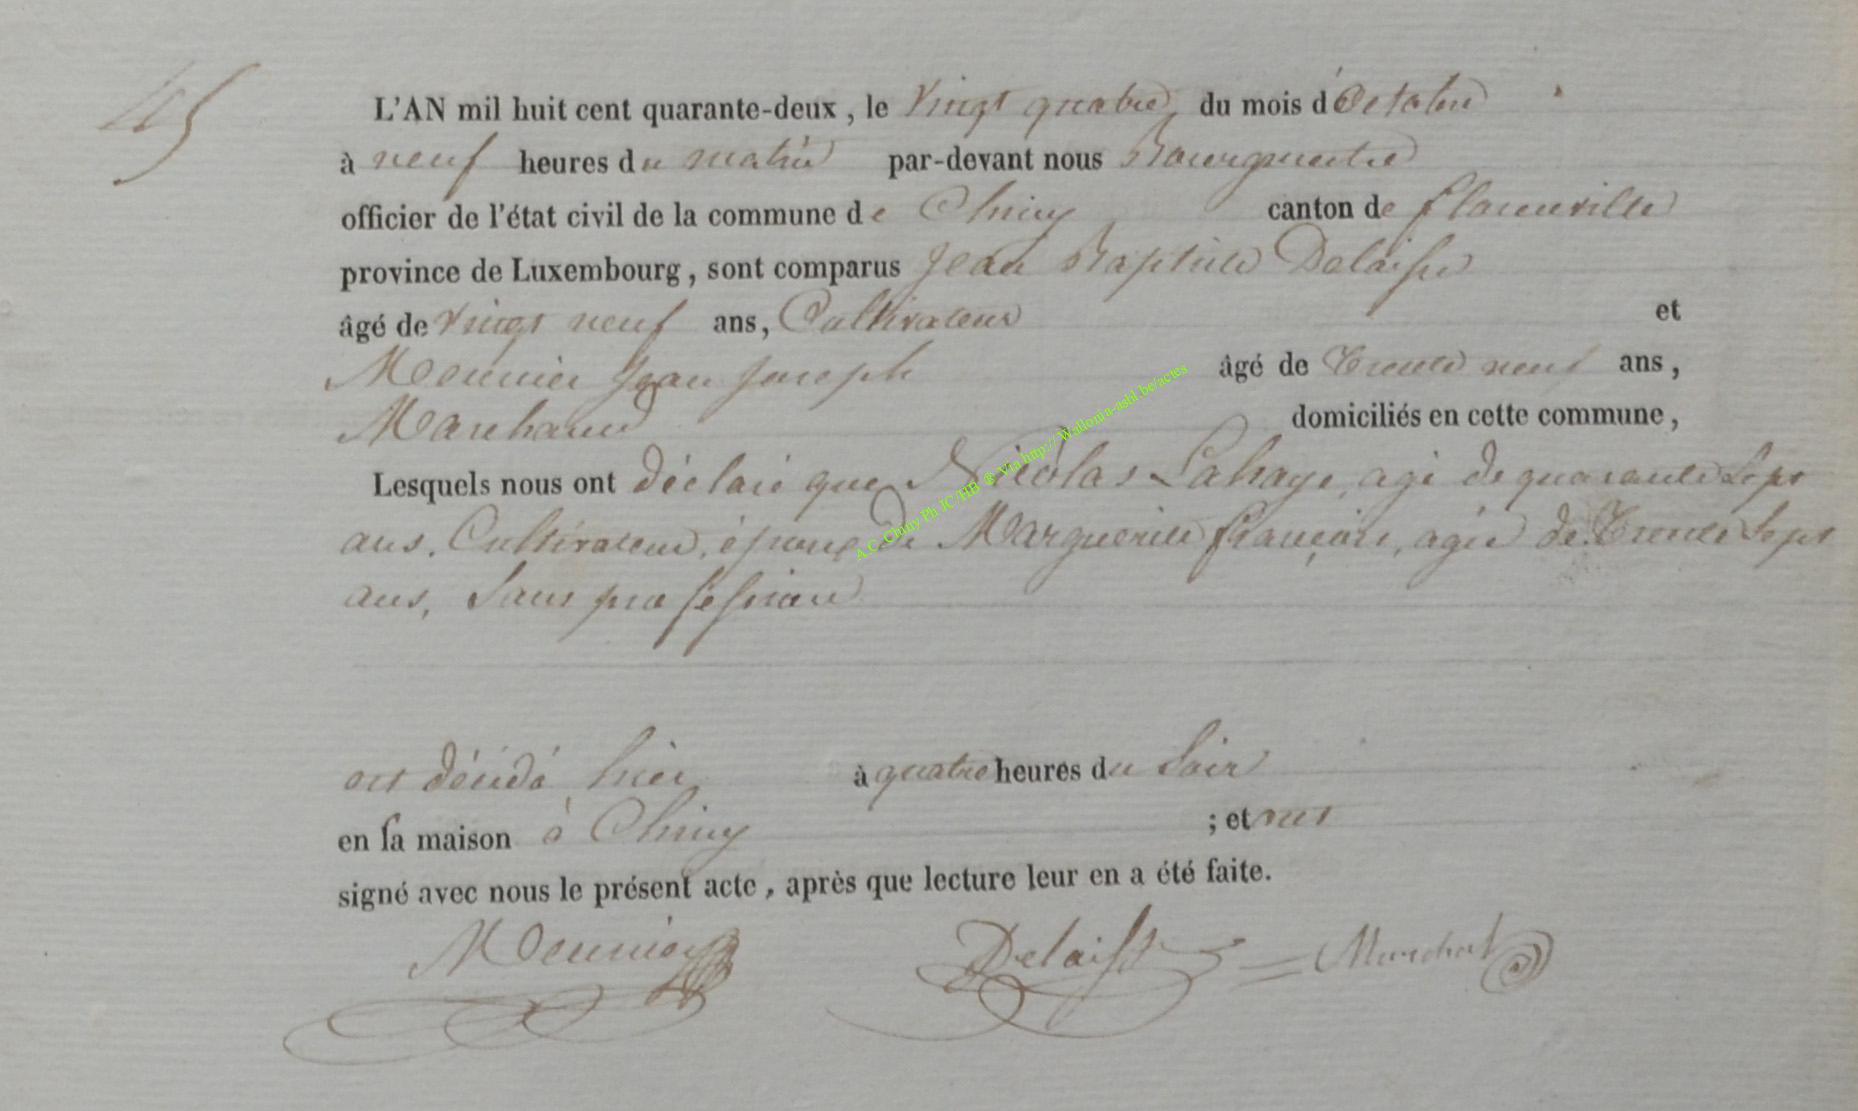 45
L'AN mil huit cent quarante-deux, le Vingt quatre du mois d'Octobre
à neuf heures du matin par-devant nous
officier de l'état civil de la commune de Chiny canton de florenville
province de Luxembourg, sont comparus Jean Baptiste Delaisse
âgé de Vingt neuf ans, Cultivateur et
Meunier Jean Joseph âgé de Trente neuf ans,
Marchand domiciliés en cette commune,
Lesquels nous ont déclaré que Nicolas Lahaye, agé de quarante Sept
ans, Cultivateur, époux de Marguerite françois, agée de Trente Sept
ans, Sans profession
est décédé hier à quatre heures du Soir
en sa maison à Chiny ; et ont
signé avec nous le présent acte, après que lecture leur en a été faite.
Meunier Delaisse Marechal
A.C. Chiny Ph JC /HB ® Via http:// Wallonia-asbl.be/actes